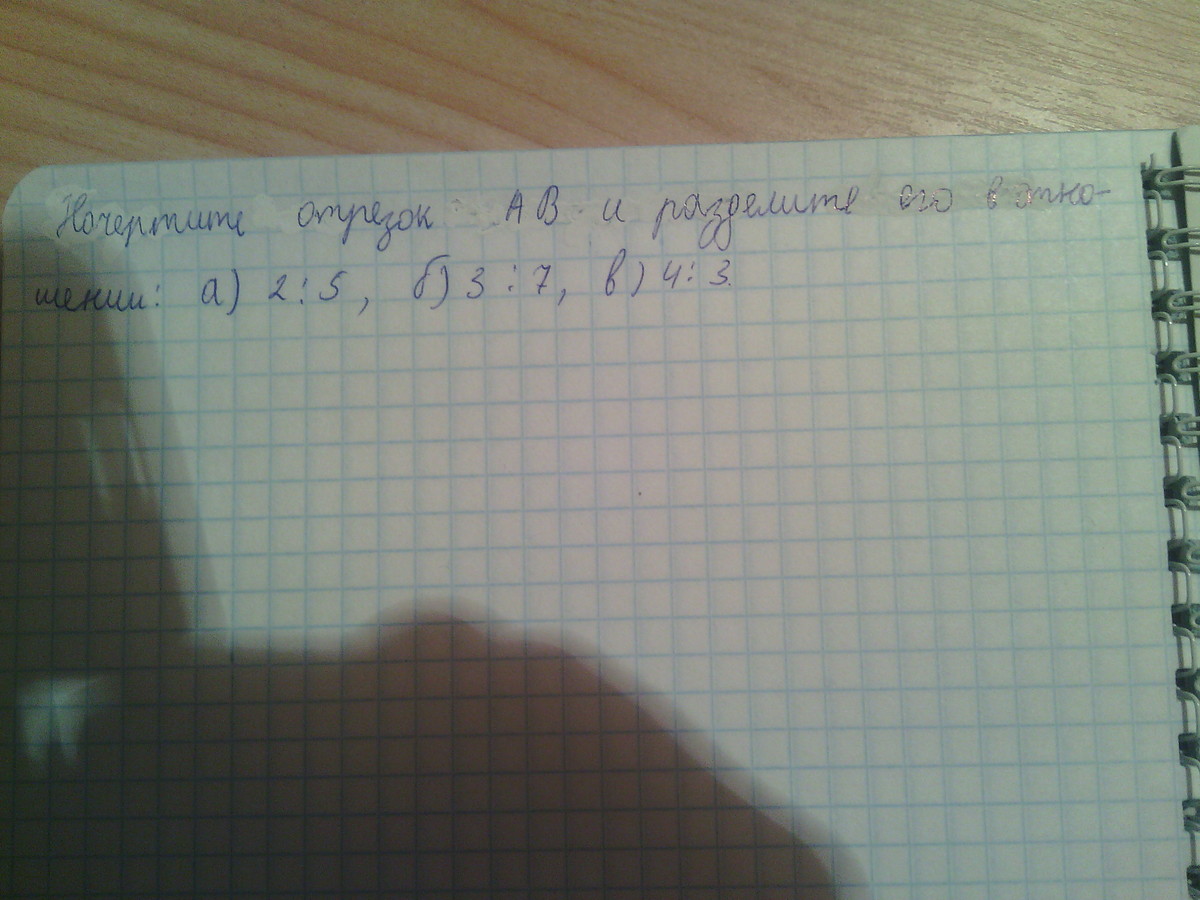 Начертите отрезок AB и разделите его в отно-
шении: а) 2:5, б) 3:7, в) 4:3.